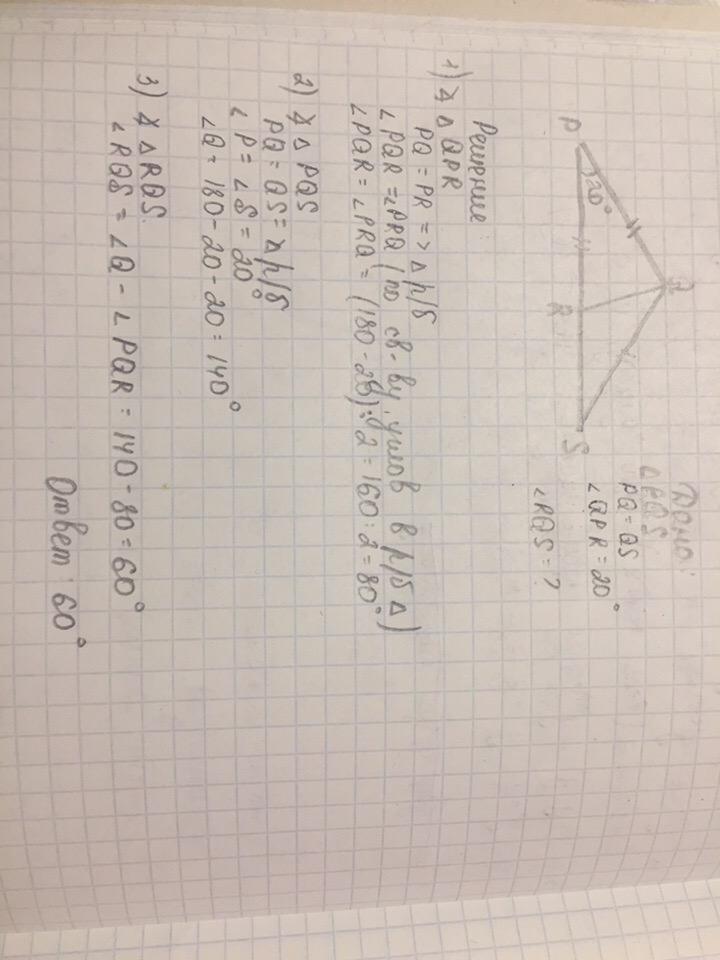 Дано:
△PQS
PQ = QS
∠QPR = 20°
∠RQS = ?
P
20°
Q
R
S
Решение:
1) ∢ △ QPR
PQ = PR => △ р/б
∠PQR = ∠PRQ (по св-ву углов в р/б △)
∠PQR = ∠PRQ = (180 - 20) : 2 = 160 : 2 = 80°
2) ∢ △ PQS
PQ = QS = △ р/б
∠P = ∠S = 20°
∠Q = 180 - 20 - 20 = 140°
3) ∢ △ RQS.
∠RQS = ∠Q - ∠PQR = 140 - 80 = 60°
Ответ: 60°